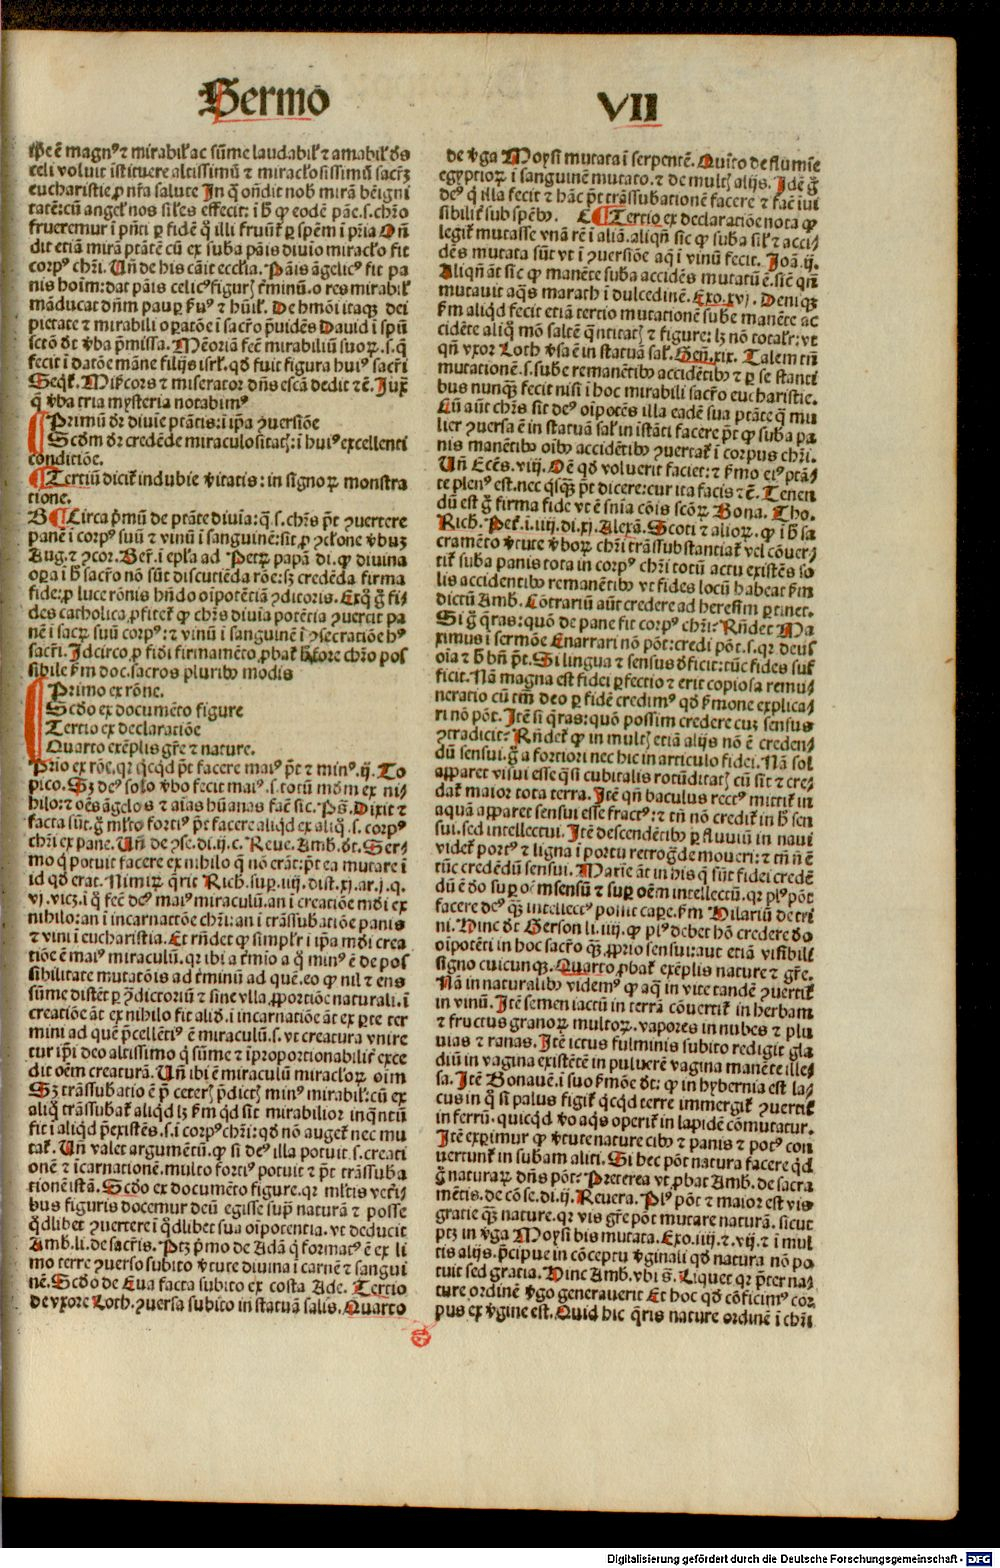 Sermo VII
ip̄e ē magnꝰ ⁊ mirabil̕ ac sūme laudabil̕ ⁊ amabil̕ dn̄s
celi voluit īstituere altissimū ⁊ miraculosissimū sacr̄m
eucharistie ꝓ nr̄a salute In q̄ on̄dit nob̕ mirā bēigni
tatē: cū angel̕ nos sil̕es effecit: ī h̄ ꝙ eodē pāe .s. chr̄o
frueremur ī pn̄ti ꝑ fidē q̊ illi fruūt̕ ꝑ spēm ī pr̄ia On̄
dit etiā mirā ptātē cū ex suba pāis diuīo miraclo fit
corpꝰ chr̄i. Vn̄ de his cāit eccl̄ia. Pāis āgelicꝰ fit pa
nis hoīm: dat pāis celicꝰ figur̕ t̕minū. o res mirabil̕
māducat dn̄m paup̲ ẜuꝰ ⁊ hūil̕. De hmōi itaqꝫ dei
pietate ⁊ mirabili oꝑatōe ī sacr̄o p̄uidēs Dauid ī spū
sct̄o dt̄ v̕ba p̄missa. Mēoriā fec̄ mirabiliū suoꝝ .s. q̄
fecit ī datōe māne filijs isrl̕. qd̕ fuit figura huiꝰ sacr̄i
Seqt̕. Mīẜcors ⁊ miserator dn̄s escā dedit ⁊c̄. Juxͣ
q̄ v̕ba tria mysteria notabimꝰ
Primū dr̄ diuīe ptātis: ī ip̄a ꝯuersiōe
Scd̄m dr̄ credēde miraculositat̕: ī huiꝰ excellenti
conditiōe.
Tertiū dicit̕ indubie v̕itatis: in signoꝝ monstra
tione.
B Circa p̄mū de ptāte diuīa: q̄ .s. chr̄s pt̄ ꝯuertere
panē ī corpꝰ suū ⁊ vinū ī sanguinē: sit ꝓ ꝯclone v̕buꝫ
Aug. ⁊ ꝯcor. Ber̄. ī epl̄a ad Petrꝝ papā di. ꝙ diuina
oꝑa ī h̄ sacr̄o nō sūt discutiēda rōe: sꝫ credēda firma
fide: ꝑ luce rōnis hn̄do oīpotētiā ꝯditoris. Exq̊ g̊ fi⸗
des catholica ꝓfitet̕ ꝙ chr̄s diuīa potētia ꝯuertit pa
nē ī sacꝝ suū corpꝰ: ⁊ vinū ī sanguinē ī ꝯsecratiōe hꝰ
sacr̄i. Idcirco ꝓ fidi firmamēto ꝓbat̕ chr̄o pos
sibile ẜm doc. sacros pluribꝰ modis
Primo ex rōne.
Scd̄o ex documēto figure
Tertio ex declaratiōe
Quarto exēplis gr̄e ⁊ nature.
Prīo ex rōe. qr q̇cq̇d pt̄ facere maiꝰ pt̄ ⁊ minꝰ .ij. To
pico. Sꝫ deꝰ solo v̕bo fecit maiꝰ .s. totū mdm̄ ex ni⸗
hilo: ⁊ oēs āgelos ⁊ aīas hūanas faē sic. Ps̄. Dixit ⁊
facta sūt. g̊ ml̕to fortiꝰ pt̄ facere aliq̇d ex aliq̊ .s. corpꝰ
chr̄i ex pane. Vn̄ de ꝯse. di. ij. c. Reue. Amb. dt̄. Ser⸗
mo q̄ potuit facere ex nihilo q̄ nō erāt: pt̄ ea mutare ī
id qd̕ erāt. Nimiꝝ q̄rit Rich. sup̲ .iiij. dist. xj. ar. j. q.
vj. vicꝫ. ī q̊ fec̄ deꝰ maiꝰ miraculū. an ī creatiōe mdi ex
nihilo: an ī incarnatiōe chr̄i: an ī trāssubatiōe panis
⁊ vini ī eucharistia. Et rn̄det ꝙ simpl̕r ī ip̄a mdi crea
tiōe ē maiꝰ miraculū. qr ibi a t̕mīo a q̊ minꝰ ē de pos
sibilitate mutatōis ad t̕minū ad quē. eo ꝙ nil ⁊ ens
sūme distēt ꝑ ꝯdictoriū ⁊ sine vlla ꝓportiōe naturali. ī
creatiōe āt ex nihilo fit aliq̇d. ī incarnatiōe āt ex ꝑte ter
mini ad quē p̄cellētiꝰ ē miraculū .s. vt creatura vnire
tur ip̄i deo altissimo q̊ sūme ⁊ īproportionabilit̕ exce
dit oēm creaturā. Vn̄ ibi ē miraculū miraclōꝝ oīm
Sꝫ trāssubatio ē p̄ ceter̕ p̄dict̕ minꝰ mirabil̕: cū ex
aliq̊ trāssubat̕ aliq̇d lꝫ ẜm q̇d sit mirabilior inq̄ntū
fit ī aliq̇d p̄existēs .s. ī corpꝰ chr̄i: qd̕ nō auget̕ nec mu
tat̕. Vn̄ valet argumētū. ꝙ si deꝰ illa potuit .s. creati
onē ⁊ īcarnationē. multo fortiꝰ potuit ⁊ pt̄ trāssuba
tionē istā. Scd̄o ex documēto figure. qr ml̕tis vet̕i⸗
bus figuris docemur deū egisse sup̲ naturā ⁊ posse
q̊dlibet ꝯuertere ī q̊dlibet sua oīpotentia. vt deducit
Amb. li. de sacr̄is. Ptꝫ p̄mo de Adā q̊ formatꝰ ē ex li
mo terre ꝯuerso subito v̕tute diuina ī carnē ⁊ sangui
nē. Scd̄o de Eua facta subito ex costa Ade. Tertio
de vxore Loth. ꝯuersa subito in statuā salis. Quarto
de v̕ga Moysi mutata ī serpentē. Quīto de flumīe
egyptioꝝ ī sanguinē mutato. ⁊ de mult̕ alijs. Idē g̊
deꝰ q̇ illa fecit ⁊ hāc pt̄ trāssubationē facere ⁊ faē īui
sibilit̕ sub spēbꝰ. C Tertio ex declaratiōe nota ꝙ
legit̕ mutasse vnā rē ī aliā. aliqn̄ sic ꝙ suba sil̕ ⁊ acci⸗
dēs mutata sūt vt ī ꝯuersiōe aq̄ ī vinū fecit. Joā. ij.
Aliqn̄ āt sic ꝙ manēte suba accidēs mutatū ē. sic qn̄
mutauit aq̄s marath ī dulcedinē. Exo. xvj. Deniqꝫ
ẜm aliq̇d fecit etiā tertio mutationē sube manēte ac
cidēte aliq̊ mō saltē q̄ntitat̕ ⁊ figure: lꝫ nō totalr̄: vt
qn̄ vxor Loth v̕sa ē in statuā sal̕. Geñ. xix. Talem tn̄
mutationē .s. sube remanētibꝰ accidētibꝰ ⁊ ꝑ se stanti
bus nunqꝫ fecit nisi ī hoc mirabili sacr̄o eucharistie.
Cū aūt chr̄s sit deꝰ oīpotēs illa eadē sua ptāte q̄ mu
lier ꝯuersa ē in statuā sal̕ in īstāti facere pt̄ ꝙ suba pa
nis manētibꝰ oībꝰ accidētibꝰ ꝯuertat̕ ī corpus chr̄i.
Vn̄ Eccēs. viij. Oē qd̕ voluerit faciet: ⁊ ẜmo eiꝰ ptā⸗
te plenꝰ est. nec q̇sqꝫ pt̄ dicere: cur ita facis ⁊c̄. Tenen
dū est g̊ firma fide vt ē snīa cōis scōꝝ Bona. Tho.
Rich. Pet̕. ī .iiij. di. xj. Alexā. Scoti ⁊ alioꝝ. ꝙ ī h̄ sa
cramēto v̕tute v̕boꝝ chr̄i trāssubstantiat̕ vel cōuer⸗
tit̕ suba panis tota in corpꝰ chr̄i totū actu existēs so
lis accidentibꝰ remanētibꝰ vt fides locū habeat ẜm
dictū Amb. Cōtrariū aūt credere ad heresim ꝑtinet.
Si g̊ q̄ras: quō de pane fit corpꝰ chr̄i: Rn̄det Ma
ximus ī sermōe Enarrari nō pōt: credi pōt .s. qr deus
oīa ⁊ h̄ bn̄ pt̄. Si lingua ⁊ sensus dficit: tūc fides suf
ficit. Nā magna est fidei ꝑfectio ⁊ erit copiosa remu⸗
neratio cū tm̄ deo ꝑ fidē credimꝰ qd̕ ẜmone explica⸗
ri nō pōt. Itē si q̄ras: quō possim credere cuꝫ sensus
ꝯtradicit: Rn̄det̕ ꝙ in mult̕ etiā alijs nō ē creden⸗
dū sensui. g̊ a fortiori nec hic in articulo fidei. Nā sol
apparet visui esse q̄si cubitalis rotūditat̕ cū sit ⁊ cre⸗
dat̕ maior tota terra. Itē qn̄ baculus rectꝰ mittit̕ in
aquā apparet sensui esse fractꝰ: ⁊ tn̄ nō credit̕ in h̄ sen
sui. sed intellectui. Itē descendētibꝰ ꝑ fluuiū in naui
videt̕ portꝰ ⁊ ligna ī portu retrog̊de moueri: ⁊ tn̄ nō ē
tūc credēdū sensui. Marie āt in his q̄ sūt fidei credē
dū ē do sup̲ oēm sensū ⁊ sup̲ oēm intellectū. qr plꝰ pōt
facere deꝰ qꝫ intellectꝰ possit caꝑe. ẜm Hilariū de tri
ni. Hinc dt̄ Gerson li. iiij. ꝙ plꝰ debet hō credere do
oīpotēti in hoc sacr̄o qꝫ ꝓprio sensui: aut etiā visibili
signo cuicunqꝫ. Quarto ꝓbat̕ exēplis nature ⁊ gr̄e.
Nā in naturalibꝰ videmꝰ ꝙ aq̄ in vite tandē ꝯuertit̕
in vinū. Itē semen iactū in terrā cōuertit̕ in herbam
⁊ fructus granoꝝ multoꝝ. vapores in nubes ⁊ plu
uias ⁊ ranas. Itē ictus fulminis subito redigit gla
diū in vagina existētē in puluerē vagina manēte ille⸗
sa. Itē Bonauē. ī suo ẜmōe dt̄: ꝙ in hybernia est la⸗
cus in q̊ si palus figit̕ q̇cq̇d terre immergit̕ ꝯuertit̕
in ferrū. quicq̇d v̕o aq̄s operit̕ in lapidē cōmutatur.
Itē exꝑimur ꝙ v̕tute nature cibꝰ ⁊ panis ⁊ potꝰ con
uertunt̕ in subam aliti. Si hec pōt natura facere q̇d
g̊ naturaꝝ dn̄s pōt: Preterea vt ꝓbat Amb. de sacra
mētis. de cō se. di. ij. Reuera. Plꝰ pōt ⁊ maior est vis
gratie qꝫ nature. qr vis gr̄e pōt mutare naturā. sicut
ptꝫ in v̕ga Moysi bis mutata. Exo. iiij. ⁊ .vij. ⁊ ī mul
tis alijs. p̄cipue in cōceptu v̕ginali qd̕ natura nō po
tuit sed gratia. Hinc Amb. vbi s̄. Liquet qr p̄ter na⸗
ture ordinē v̕go generauerit Et hoc qd̕ cōficimꝰ cor
pus ex v̕gine est. Quid hic q̄ris nature ordinē ī chr̄i
Digitalisierung gefördert durch die Deutsche Forschungsgemeinschaft - DFG